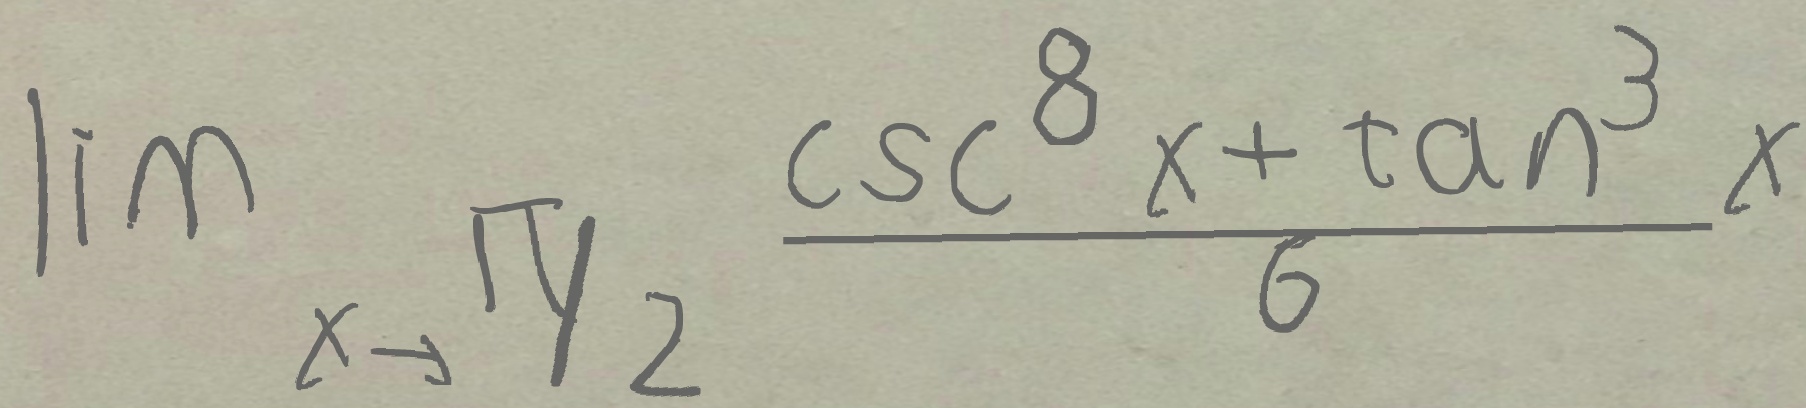 \lim_{x \to \pi/2} \frac{\csc^8 x + \tan^3 x}{6}